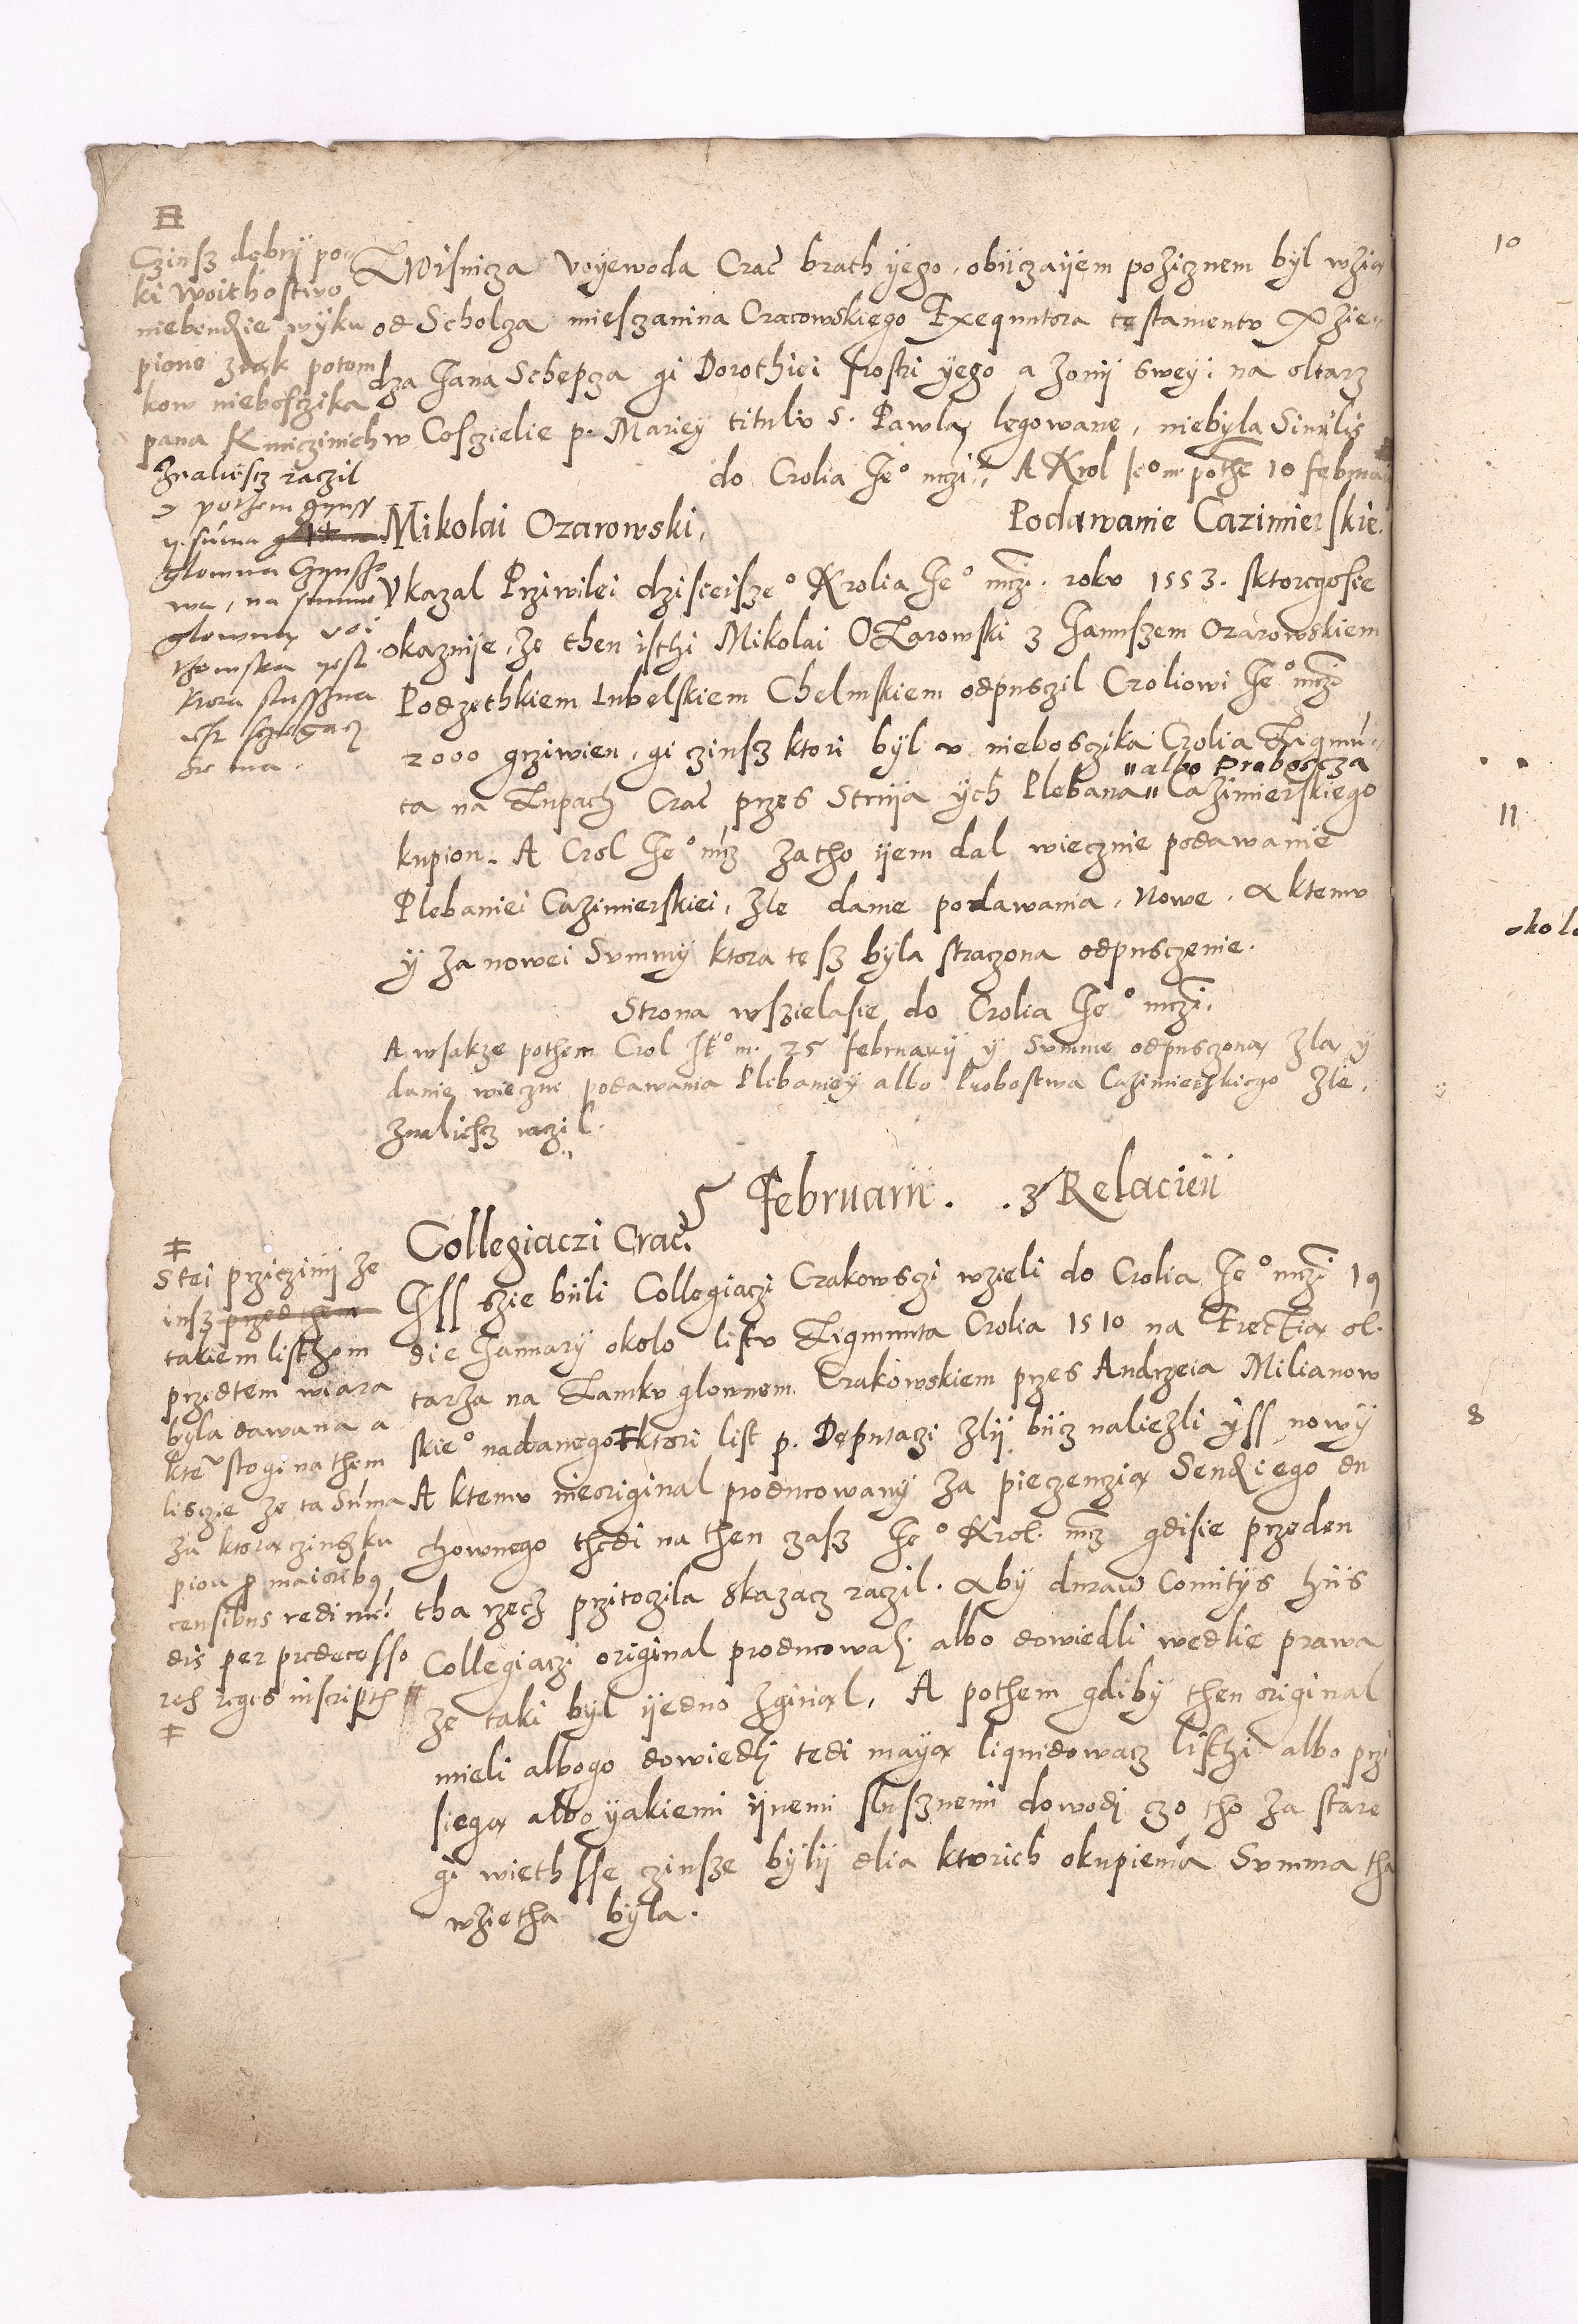 Czinsz dobrÿ po-
ki woithostwo
niebendzie wÿku
piono z rąk potom
kow nieboszczika
pana Kmiczinich
znaliescz raczil
a pothem
ÿ suma
glowna Czynszo
wa, na summe
glowną voi
thowska yest
ktora sluszna

Z Wisnicza Voÿewoda Crac brath ÿego, obÿczaÿem poziznem bÿl wziął
od Scholcza miesczanina Cracowskiego Exequutora testamentu Xzie-
dza Jana Schepcza gi Dorothiei siostri ÿego a zonÿ swey: na oltarz
w Cosczielie p. Marieÿ titulu S. Pawla legowane, niebÿla Similis
do Crolia Jeº mczi. A Krol Jeº m pothem 10 februarÿ
Mikolai Ozarowski,
Podawanie Cazimierskie.
Vkazal Prziwilei dzisieiszeº Krolia Jeº mczi. roku 1553. sktoregosie
okazuije, ze then isthi Mikolai OZarowski z Januszem Ozarowskiem
Podczethkiem Lubelskiem Chelmskiem odpusczil Croliowi Jeº mczi
2000 grziwien, gi czinsz ktori bÿl v nieboszika Crolia Zigmu-
"albo Proboscza
ta na Zupach Crac przes Strÿia ÿch Plebana" Cazimierskiego
kupion. A Crol Jeº mcz zatho ÿem dal wiecznie podawanie
Plebaniei Cazimierskiei, zle dane podawania, Nowe, A ktemu
ÿ za nowei Summÿ ktora tesz bÿla straczona odpusczenie.
Strona wszielasie do Crolia Jeº mczi.
A wsakze pothem Crol Jeº m. 25 februarÿ ÿ Summe odpusczoną zlą ÿ
danie wieczne podawania Plebanieÿ albo Probostwa Cazimierskiego zle,
znalicscz raczil.
5 Februarii. . z Relacieÿ
Collegiaczi Crac.
Iss szie bÿli Collegiaczi Crakowsczi wzieli do Crolia Jeº mczi 19
die Januarÿ okolo listu Zigmunta Crolia 1510 na Erectią ol-
tarza na Zamku glownem Crakowskiem przes Andrzeia Milianow
skieº nadanego ‡ ktori list p. Deputaczi zlÿ bÿcz naliezli ÿss nowÿ
A ktemu nieoriginal producowanÿ za pieczenczią Sendziego du
chownego thedi na then czasz Jeº Krol. mcz gdisie przeden
tha rzecz prztoczila skazacz raczil. Abÿ duraw Comitÿs hiis
Collegiaczi original producowali albo dowiedli wedlie prawa
ze taki bÿl ÿedno zginął, A pothem gdibÿ then original
mieli albogo dowiedli tedi maÿą liquidowacz listhi albo przi
siegą albo ÿakiemi ÿnemi slusznemi dowodi czo tho za stare
gi wiethsse czinsze bÿlÿ dlia ktorich okupienia Summa tha
wzietha bÿla.

‡
S tei prziczinÿ ze
insz przedthem
takiem listhom
przedtem wiara
bÿla dawana a
ktemu stogi na them
liscie ze ta Suma
za ktorą czinsz ku
pion p maioribus
censibus redimen
dis per predecesso
res reges inscriptis
‡

10
11
okolo
8